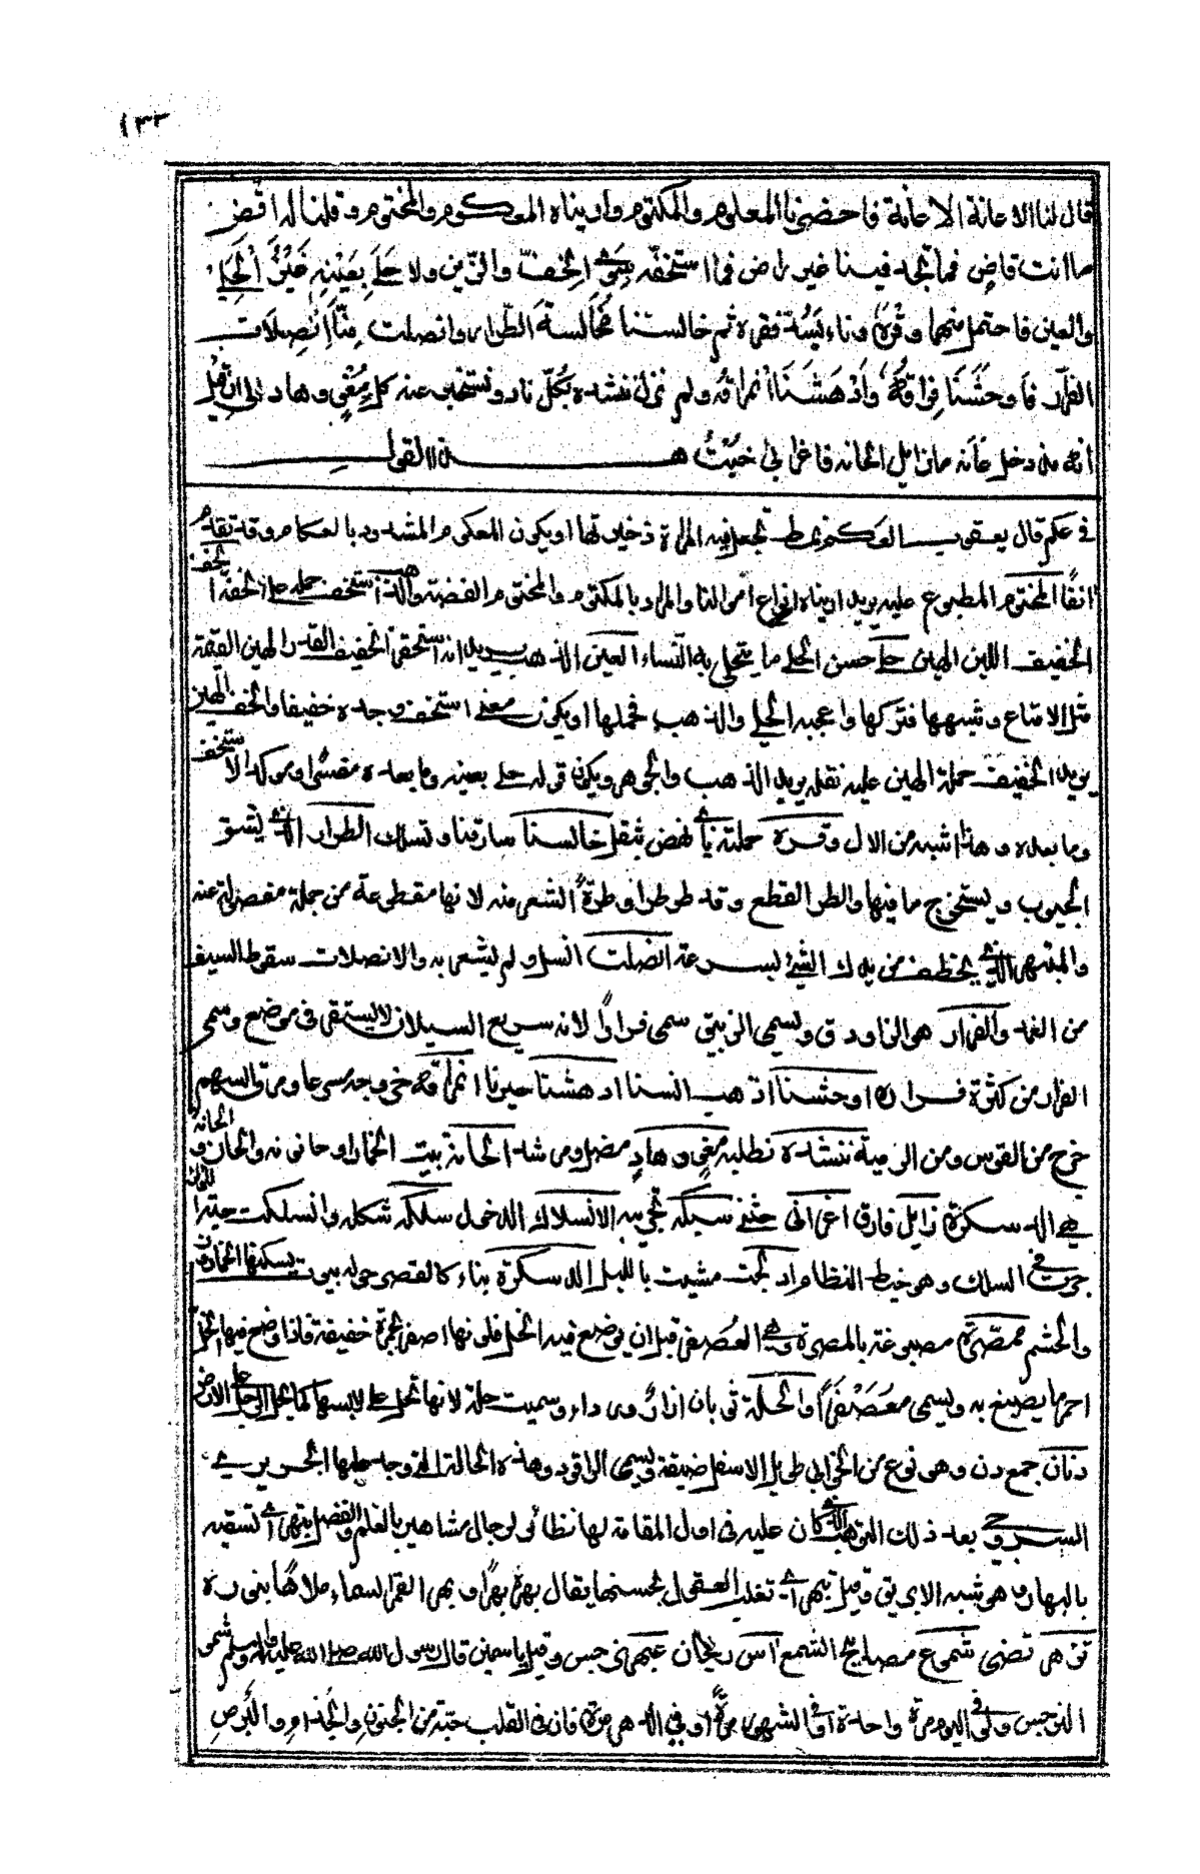 ١٣٣
قال لنا الاعانة الاعانة فاحضرنا المعلوم والمكتوم واريناه المعكوم والمختوم وقلنا له اقض
ما انت قاض فما تجد فينا غير راض فما استخفّه سوى الخفّ والزّين ولا حلي بعينه غير الحلي
والعين فاحتمل منهما وقره وناء بما يسدّ فقره ثم خالسنا مخالسة الطرار وانصلت منّا انصلات
الفرار فاوحشنا فراقه وادهشنا امّراقه ولم نزل ننشده بكلّ ناد ونستخبر عنه كل مغو وهاد الى ان قيل
انه مذ دخل عانه ما زايل الحانه فاغراني خبث هـذا القول
في عكم قال يعقوب العكم نمط تجعل فيه المراة ذخيرتها او يكون المعكوم المشدود بالعكام وقد تقدم
انفًا المختوم المطبوع عليه يريد اريناه انواع اموالنا والمراد بالمكتوم والمختوم الفضة والذهب استخف حمله على الخفة
الخفيف اللين الهين حلي حسن الحلي ما يتحلى به النساء العين الذهب يريد انه استحقر الخفيف القدر الهين القيمة
مثل الامتاع وشبهها فتركها واعجبه الحلي والذهب فحملها او يكون معنى استخف وجده خفيفا والخف الهين
يريد الخفيف حملة الهين عليه نقله يريد الذهب والجوهر ويكون قوله حلي بعينه وما بعده مفسّرا وموكد الاستخف
وما بعده وهذا اشبه من الاول وقره حملته ناء نهض بثقل خالسنا سارقنا وتسلل الطرار الذي يشق
الجيوب ويستخرج ما فيها والطر القطع وقد طر طرا وطرّة الشعر منه لانها مقطوعة من جملة مفصولة عنه
الذي يخطف من يدك الشئ بسرعة انصلت انسل ولم يشعر به والانصلات سقوط السيف
من الغمد والفرار هو الزاووق ويسمى الزيبق سمى فرارًا لانه سريع السيلان لا يستقر في موضع وسمى
الفرار من كثرة فراره اوحشنا اذهب انسنا ادهشنا حيرنا امراقه خروجه مسرعا ومرق السهم
خرج من القوس ومن الرمية ننشده نطلبه مغو وهاد مضل ومرشد الحانة بيت الخمار او حانوته والحان والحانة
هي الدسكرة زايل فارق اغراني حثني سبكه تجربه الانسلاك الدخول سلكه شكله وانسلكت
جرت في السلك وهو خيط النظام ادلجت مشيت بالليل الدسكرة بناء كالقصر حوله بيوت يسكنها الخمارون
والحشم ممصّرة مصبوغة بالمصرة وهي العصفر قبل ان يوضع فيه الخل فلونها اصفر بحمرة خفيفة فاذا وضع فيها الخل
احمر ما يصبغ به ويسمى معصفرًا والحلة ثوبان ازار ورداء وسميت حلة لانها تحل على لابسها كما يحل الرجل على الارض
دنان جمع دن وهو نوع من الخوابي طويل الاسفل ضيقه ويسمى الراقود وهذه الحالة التي وجد عليها الحريري
السروجي بعد ذلك الترهب الذي كان عليه في اول المقامة لها نظائر لرجال مشاهير بالعلم والفضل تبهر اي تسقيه
بالبهار وهو شبه الابريق وقيل تبهر اي تغلب العقول بحسنها يقال بهره بهرًا وبهر القمر السماء ملاها بنوره
تزهر تضئ شموع مصابيح الشمع آس ريحان عبهر نرجس وقيل ياسمين قال رسول الله صلى الله عليه واله وسلم شموا
النرجس ولو في اليوم مرة واحدة او في الشهر مرّة او في الدهر مرة فان في القلب حبة من الجنون والجذام والبرص